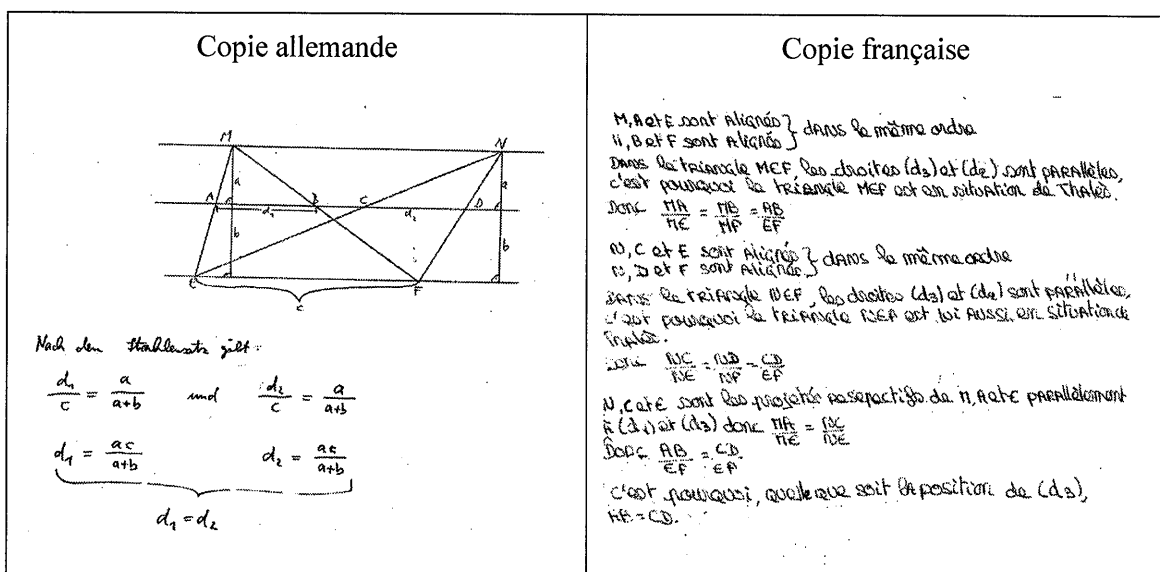 Copie allemande
M
N
a
a
A
B
C
D
d₁
d₂
b
b
E
F
c
Nach dem Strahlensatz gilt:
d₁/c = a/(a+b) und d₂/c = a/(a+b)
d₁ = ac/(a+b) d₂ = ac/(a+b)
d₁ = d₂
Copie française
M, A et E sont Alignés } dans le même ordre
N, B et F sont Alignés
Dans le triangle MEF, les droites (d₃) et (d₂) sont parallèles,
c'est pourquoi le triangle MEF est en situation de Thalès.
Donc MA/ME = MB/MF = AB/EF
N, C et E sont Alignés } dans le même ordre
N, D et F sont Alignés
Dans le triangle NEF, les droites (d₃) et (d₂) sont parallèles,
c'est pourquoi le triangle NEF est lui aussi en situation de
Thalès.
donc NC/NE = ND/NF = CD/EF
N, C et E sont les projetés respectifs de M, A et E parallèlement
à (d₁) et (d₃) donc MA/ME = NC/NE
Donc AB/EF = CD/EF
c'est pourquoi, quelle que soit la position de (d₃),
AB = CD.